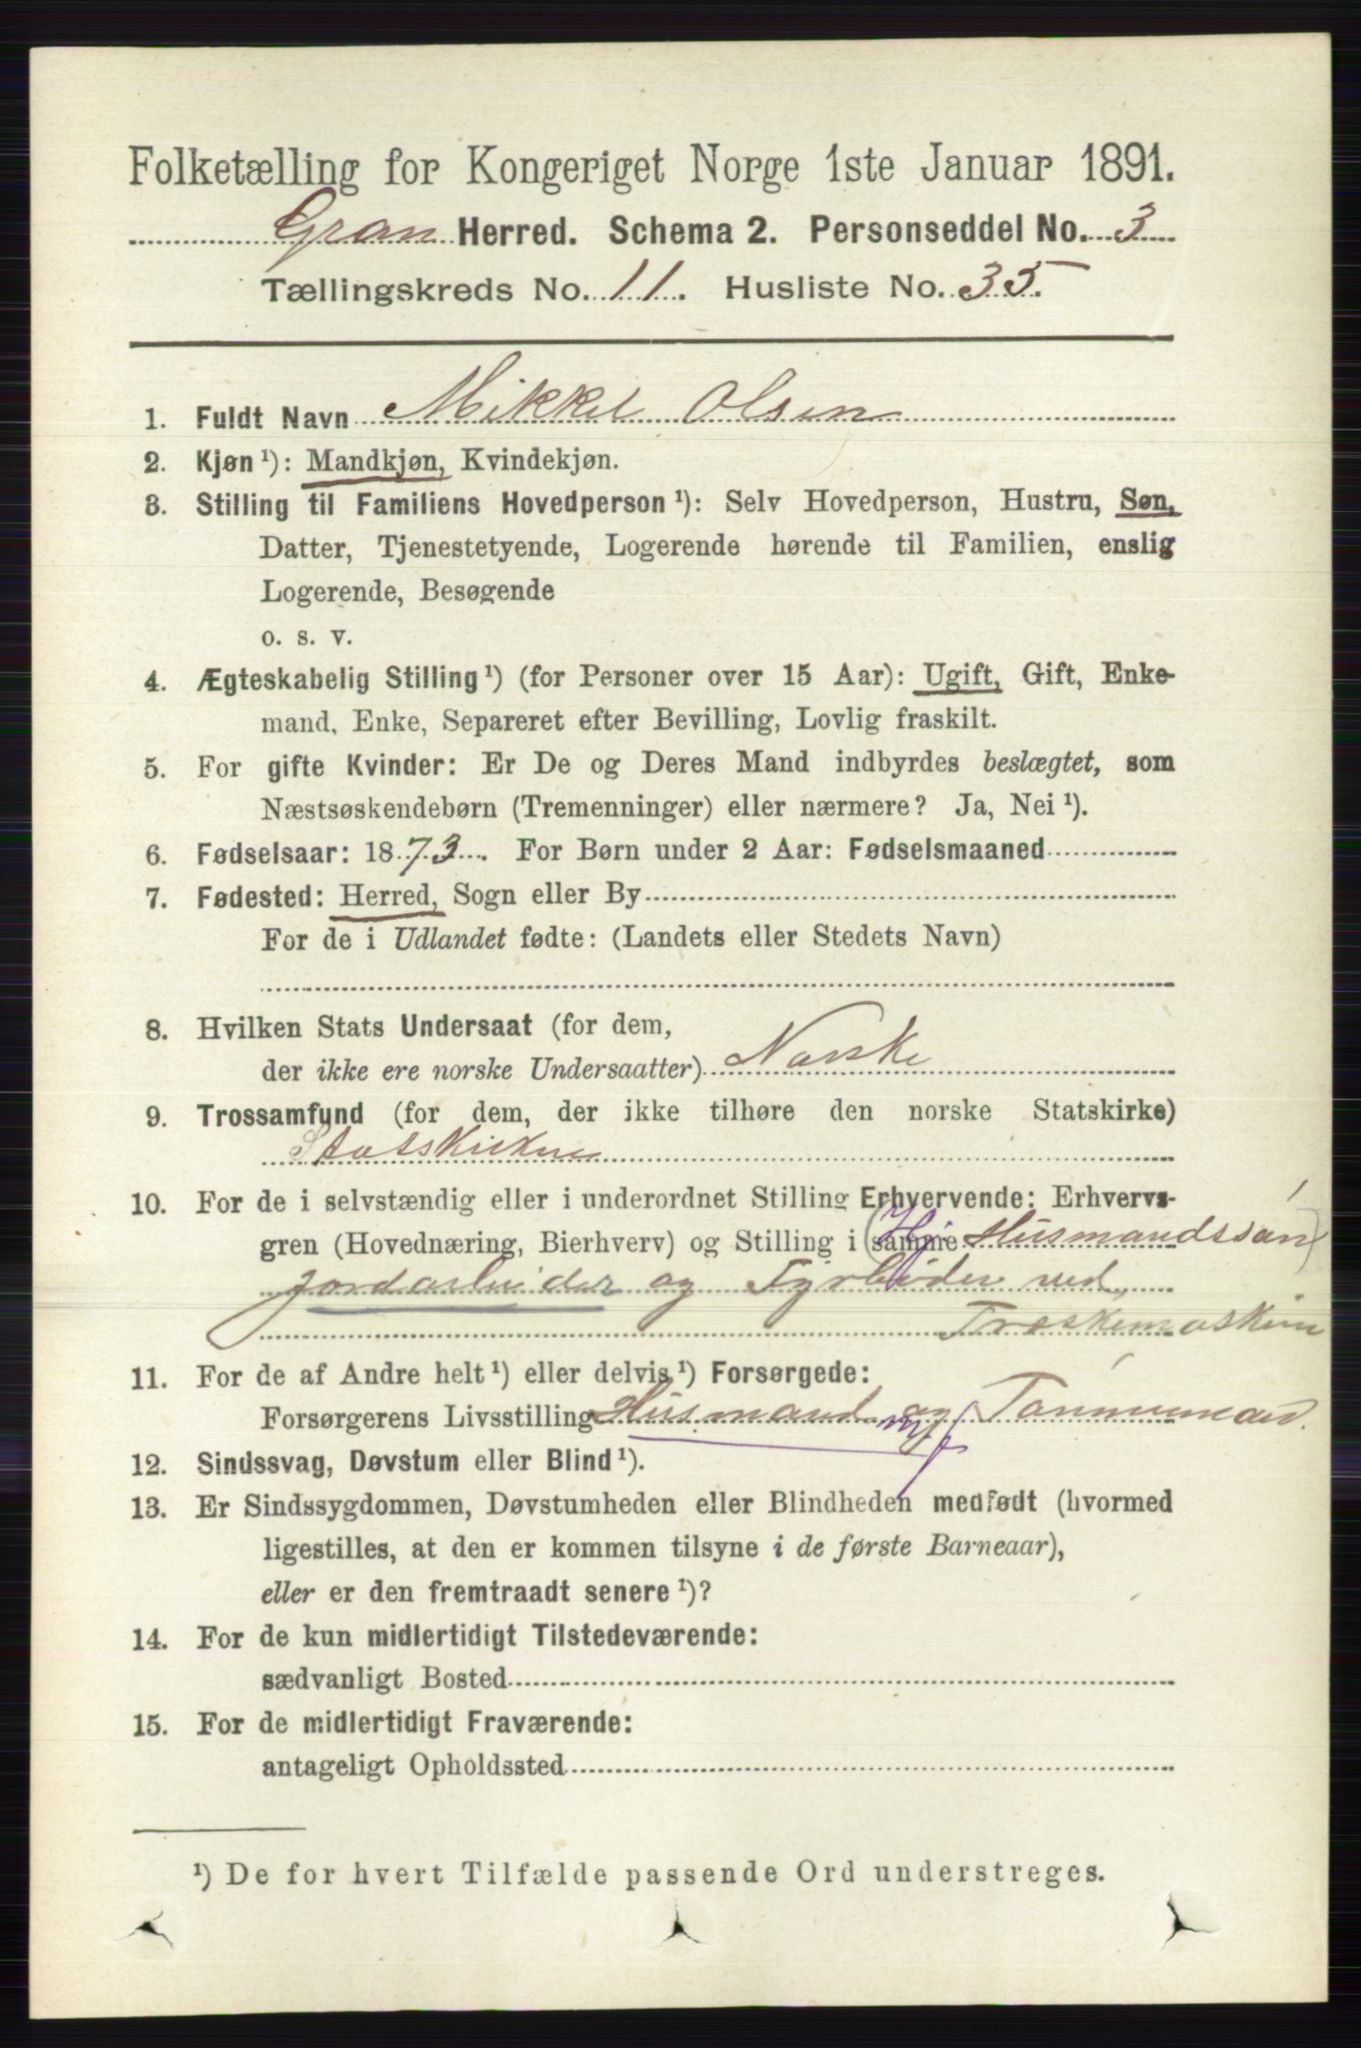 Folketælling for Kongeriget Norge 1ste Januar 1891.
Gran Herred. Schema 2. Personseddel No. 3
Tællingskreds No. 11. Husliste No. 35.
1. Fuldt Navn Mikkel Olsen
2. Kjøn ¹): Mandkjøn, Kvindekjøn.
3. Stilling til Familiens Hovedperson ¹): Selv Hovedperson, Hustru, Søn,
Datter, Tjenestetyende, Logerende hørende til Familien, enslig
Logerende, Besøgende
o. s. v.
4. Ægteskabelig Stilling ¹) (for Personer over 15 Aar): Ugift, Gift, Enke-
mand, Enke, Separeret efter Bevilling, Lovlig fraskilt.
5. For gifte Kvinder: Er De og Deres Mand indbyrdes beslægtet, som
Næstsøskendebørn (Tremenninger) eller nærmere? Ja, Nei ¹).
6. Fødselsaar: 1873. For Børn under 2 Aar: Fødselsmaaned
7. Fødested: Herred, Sogn eller By
For de i Udlandet fødte: (Landets eller Stedets Navn)
8. Hvilken Stats Undersaat (for dem,
der ikke ere norske Undersaatter) Norske
9. Trossamfund (for dem, der ikke tilhøre den norske Statskirke)
Statskirken
10. For de i selvstændig eller i underordnet Stilling Erhvervende: Erhvervs-
gren (Hovednæring, Bierhverv) og Stilling i samme (Husmandssøn)
Jordarbeider og Fyrbøder ved
Træskemaskine
11. For de af Andre helt ¹) eller delvis ¹) Forsørgede:
Forsørgerens Livsstilling Husmand m/j og Tømmermand.
12. Sindssvag, Døvstum eller Blind ¹).
13. Er Sindssygdommen, Døvstumheden eller Blindheden medfødt (hvormed
ligestilles, at den er kommen tilsyne i de første Barneaar),
eller er den fremtraadt senere ¹)?
14. For de kun midlertidigt Tilstedeværende:
sædvanligt Bosted
15. For de midlertidigt Fraværende:
antageligt Opholdssted
¹) De for hvert Tilfælde passende Ord understreges.